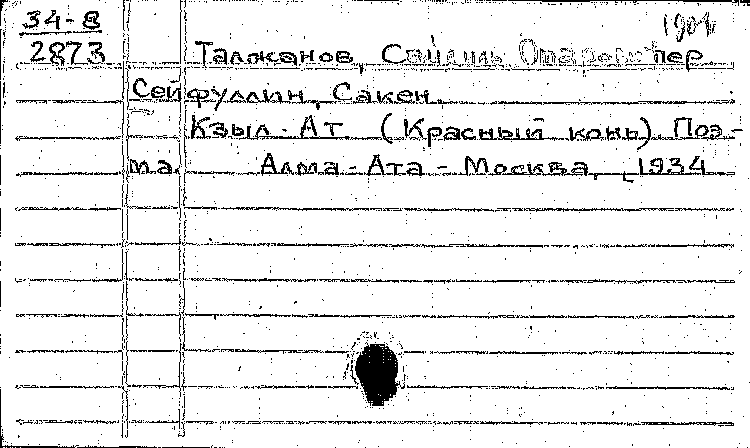 34-8
1901
2873 Талжанов, Сайдиль Отарович пер
Сейфуллин, Сакен.
Кзыл-Ат. (Красный конь). Поэ-
ма. Алма-Ата - Москва, 1934